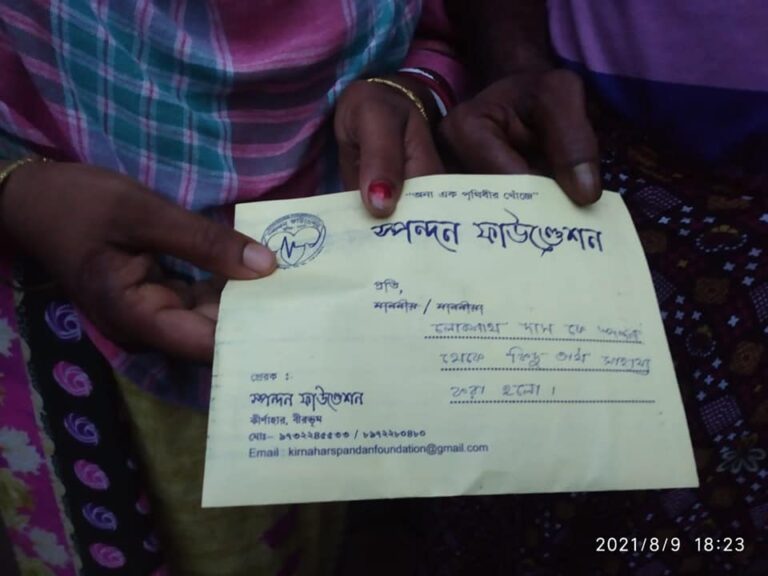 "অন্য এক পৃথিবীর খোঁজে"
স্পন্দন ফাউণ্ডেশন
প্রতি,
মাননীয় / মাননীয়া
লোকনাথ দাস কে স্পন্দন
থেকে কিছু অর্থ সাহায্য
করা হলো।
প্রেরক :
স্পন্দন ফাউণ্ডেশন
কীর্ণাহার, বীরভূম
মোঃ- ৯৭৩২২৪৫৫৩৩ / ৮৯৭২২৮০৪৮০
Email : kirnaharspandanfoundation@gmail.com
2021/8/9 18:23